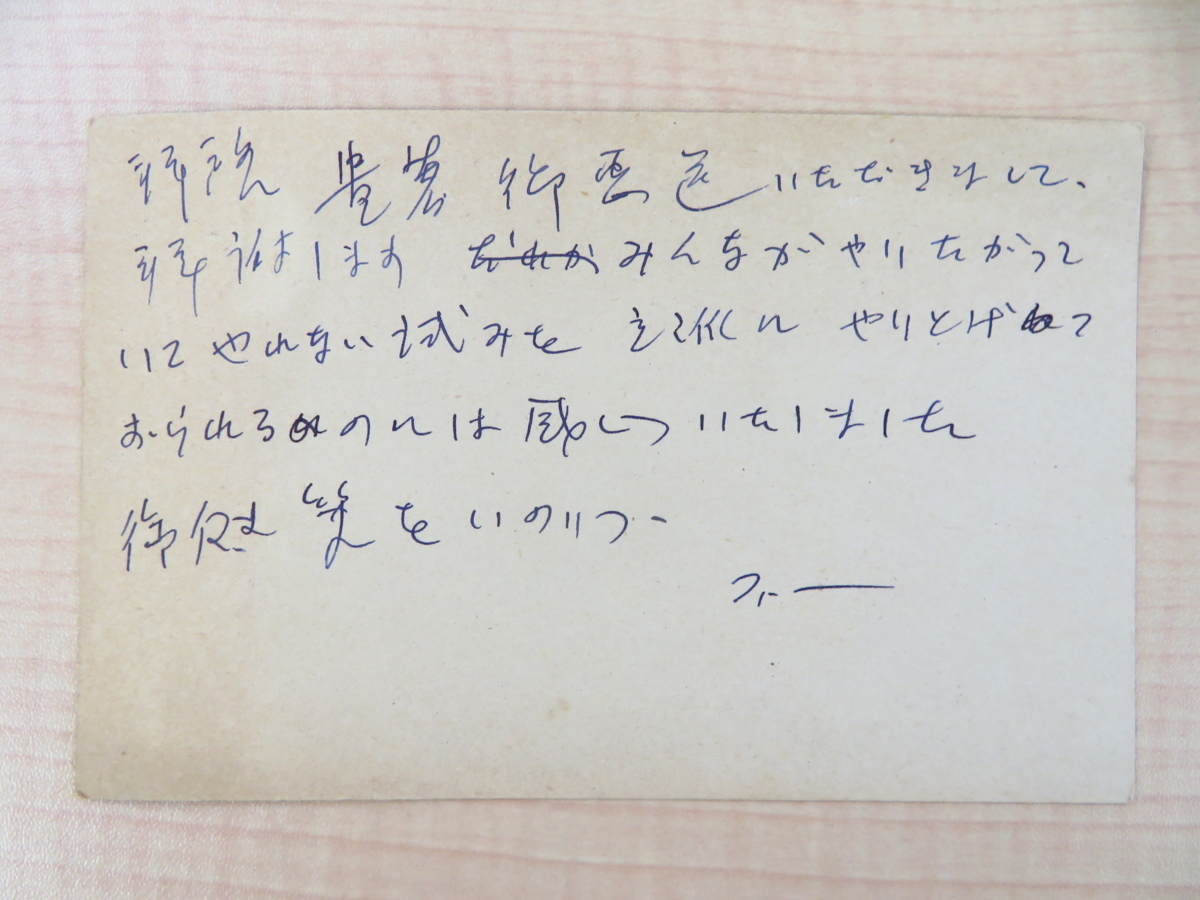 拝啓 貴著 御恵送いただきまして、
拝謝します だれか みんながやりたがって
いてやれない試みを 立派に やりとげて
おられるのには感心いたしました
御健筆をいのりつゝ
不一